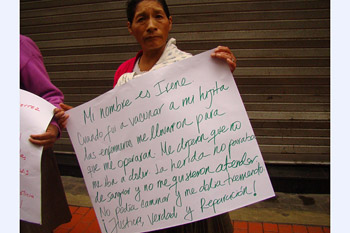 Mi nombre es Irene
Cuando fui a vacunar a mi hijita
las enfermeras me llevaron para
que me operarar. Me decían que no
me iba a doler. La herida no paraba
de sangrar y no me quisieron atender.
No podía caminar y me dolía tremendamente
¡Justicia, verdad y Reparación!